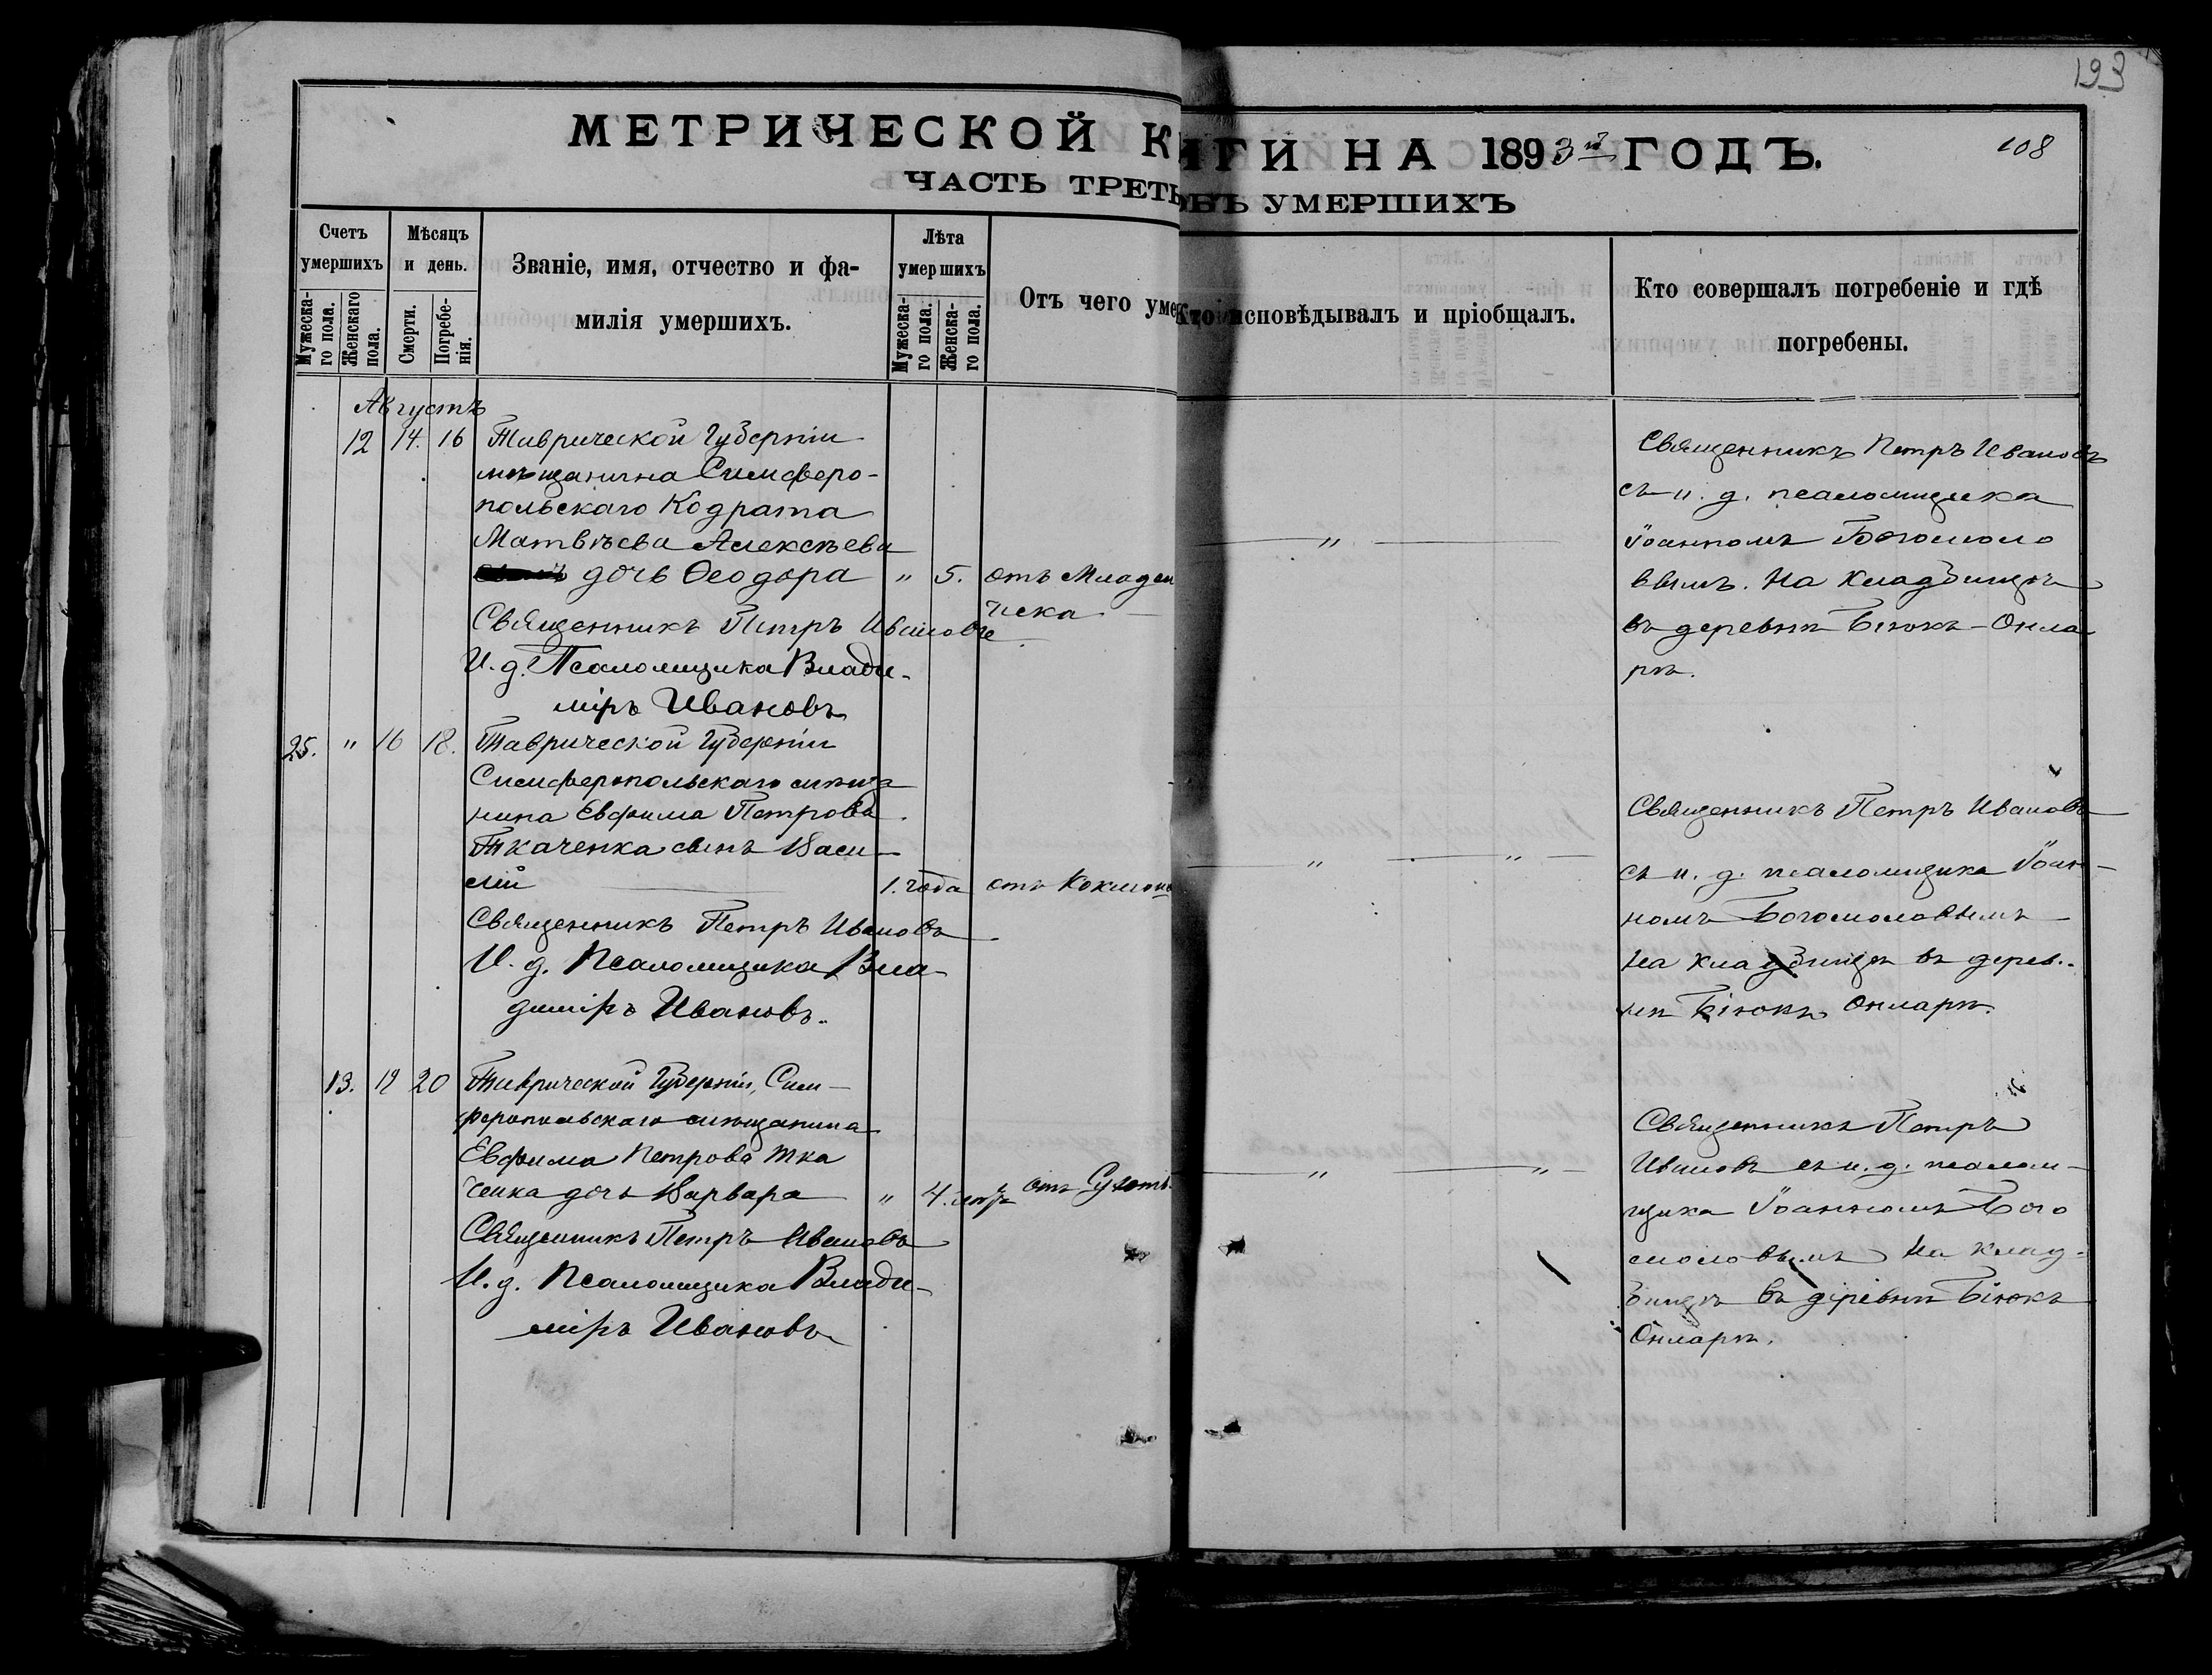 193
МЕТРИЧЕСКОЙ К
ИГИ НА 1893й ГОДЪ.
108
ЧАСТЬ ТРЕТЬ
УМЕРШИХЪ
Счетъ умершихъ
Мужеска-го пола.
Женскаго пола.
Мѣсяцъ и день.
Смерти.
Погребе-нія.
Званіе, имя, отчество и фа-
милія умершихъ.
Лѣта умершихъ
Мужеска-го пола.
Женска-го пола.
Отъ чего уме
Кто исповѣдывалъ и пріобщалъ.
Кто совершалъ погребеніе и гдѣ
погребены.
Августъ
12 14. 16 Таврической Губерніи
мѣщанина Симферо-
польскаго Кодрата
Матвѣева Алексѣева
дочь Ѳеодора " 5. отъ Младен
ческа
Священникъ Петръ Ивановъ
И. д. Псаломщика Влади-
міръ Ивановъ
"
Священникъ Петръ Ивановъ
съ и. д. псаломщика
Іоанномъ Богомоло
вымъ. На кладбищѣ
въ деревнѣ Біюкъ-Онла
рѣ.
25. " 16 18. Таврической Губерніи
Симферопольскаго мѣща
нина Евфима Петрова
Ткаченка сынъ Васи-
лій 1. года отъ Коклюш
Священникъ Петръ Ивановъ
И. д. Псаломщика Вла-
диміръ Ивановъ.
" "
Священникъ Петръ Ивановъ
съ и. д. псаломщика Іоан-
номъ Богомоловымъ
на кладбищѣ въ дерев-
нѣ Біюкъ Онларѣ.
13. 19 20 Таврической Губерніи, Сим-
феропольскаго мѣщанина
Евфима Петрова Тка
ченка дочь Варвара " 4. отъ Сухот
Священникъ Петръ Ивановъ
И. д. Псаломщика Влади-
міръ Ивановъ
" "
Священникъ Петръ
Ивановъ съ и. д. псалом-
щика Іоанномъ Бого
моловымъ На клад-
бищѣ въ деревнѣ Біюкъ
Онларѣ.